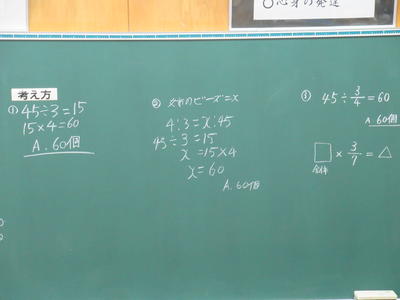 〇心身の発達
考え方
① 45÷3=15
15×4=60
A.60個
② 文れのビーズ=x
4:3=x:45
45÷3=15
x=15×4
x=60
A.60個
③ 45÷3/4=60
A.60個
□×3/7=△
全体